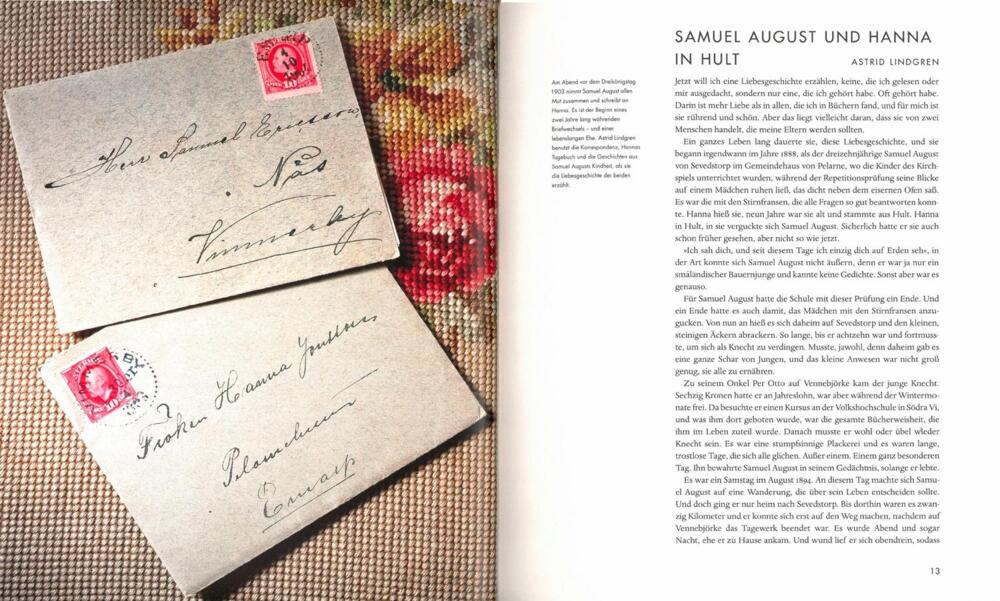 Herr Samuel Ericsson
Näs
Vimmerby
Fröken Hanna Jonsson
Pelarnehult
SAMUEL AUGUST UND HANNA
IN HULT
ASTRID LINDGREN
Am Abend vor dem Dreikönigstag
1903 nimmt Samuel August allen
Mut zusammen und schreibt an
Hanna. Es ist der Beginn eines
zwei Jahre lang währenden
Briefwechsels – und einer
lebenslangen Ehe. Astrid Lindgren
benutzt die Korrespondenz, Hannas
Tagebuch und die Geschichten aus
Samuel Augusts Kindheit, als sie
die Liebesgeschichte der beiden
erzählt.
Jetzt will ich eine Liebesgeschichte erzählen, keine, die ich gelesen oder
mir ausgedacht, sondern nur eine, die ich gehört habe. Oft gehört habe.
Darin ist mehr Liebe als in allen, die ich in Büchern fand, und für mich ist
sie rührend und schön. Aber das liegt vielleicht daran, dass sie von zwei
Menschen handelt, die meine Eltern werden sollten.
Ein ganzes Leben lang dauerte sie, diese Liebesgeschichte, und sie
begann irgendwann im Jahre 1888, als der dreizehnjährige Samuel August
von Sevedstorp im Gemeindehaus von Pelarne, wo die Kinder des Kirch-
spiels unterrichtet wurden, während der Repetitionsprüfung seine Blicke
auf einem Mädchen ruhen ließ, das dicht neben dem eisernen Ofen saß.
Es war die mit den Stirnfransen, die alle Fragen so gut beantworten konn-
te. Hanna hieß sie, neun Jahre war sie alt und stammte aus Hult. Hanna
in Hult, in sie verguckte sich Samuel August. Sicherlich hatte er sie auch
schon früher gesehen, aber nicht so wie jetzt.
»Ich sah dich, und seit diesem Tage ich einzig dich auf Erden seh«, in
der Art konnte sich Samuel August nicht äußern, denn er war ja nur ein
småländischer Bauernjunge und kannte keine Gedichte. Sonst aber war es
genauso.
Für Samuel August hatte die Schule mit dieser Prüfung ein Ende. Und
ein Ende hatte es auch damit, das Mädchen mit den Stirnfransen anzu-
gucken. Von nun an hieß es sich daheim auf Sevedstorp und den kleinen,
steinigen Äckern abrackern. So lange, bis er achtzehn war und fortmuss-
te, um sich als Knecht zu verdingen. Musste, jawohl, denn daheim gab es
eine ganze Schar von Jungen, und das kleine Anwesen war nicht groß
genug, sie alle zu ernähren.
Zu seinem Onkel Per Otto auf Vennebjörke kam der junge Knecht.
Sechzig Kronen hatte er an Jahreslohn, war aber während der Wintermo-
nate frei. Da besuchte er einen Kursus an der Volkshochschule in Södra Vi,
und was ihm dort geboten wurde, war die gesamte Bücherweisheit, die
ihm im Leben zuteil wurde. Danach musste er wohl oder übel wieder
Knecht sein. Es war eine stumpfsinnige Plackerei und es waren lange,
trostlose Tage, die sich alle glichen. Außer einem. Einem ganz besonderen
Tag. Ihn bewahrte Samuel August in seinem Gedächtnis, solange er lebte.
Es war ein Samstag im August 1894. An diesem Tag machte sich Samu-
el August auf eine Wanderung, die über sein Leben entscheiden sollte.
Und doch ging er nur heim nach Sevedstorp. Bis dorthin waren es zwan-
zig Kilometer und er konnte sich erst auf den Weg machen, nachdem auf
Vennebjörke das Tagewerk beendet war. Es wurde Abend und sogar
Nacht, ehe er zu Hause ankam. Und wund lief er sich obendrein, sodass
13